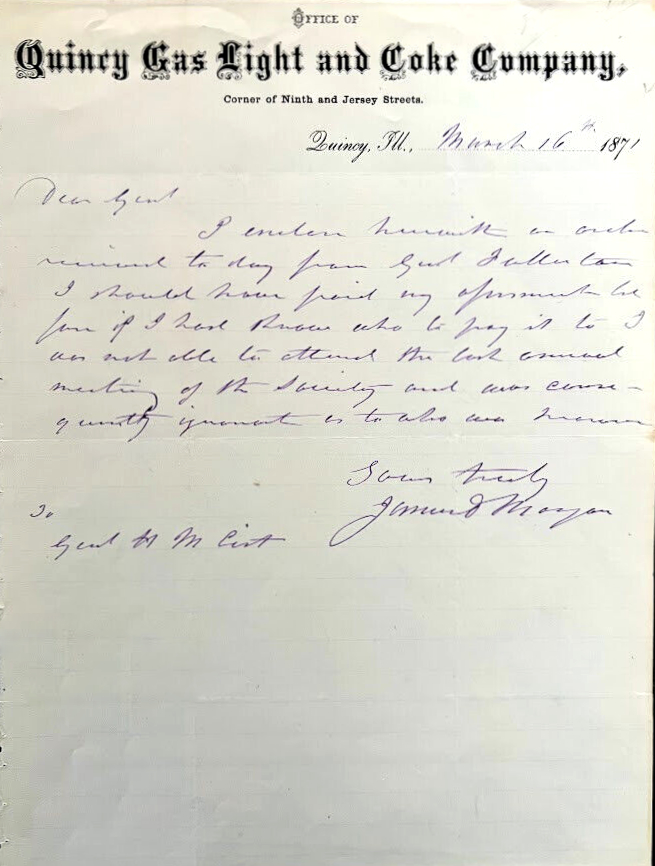 OFFICE OF
Quincy Gas Light and Coke Company,
Corner of Ninth and Jersey Streets.
Quincy, Ill., March 16th 1871
Dear Genl
I enclose herewith an order
received to day from Genl Fullerton
I should have paid my assessment be
fore if I had known who to pay it to I
was not able to attend the last annual
meeting of the Society and was conse-
quently ignorant as to who was
Yours truly
James D Morgan
To
Genl H M Cist